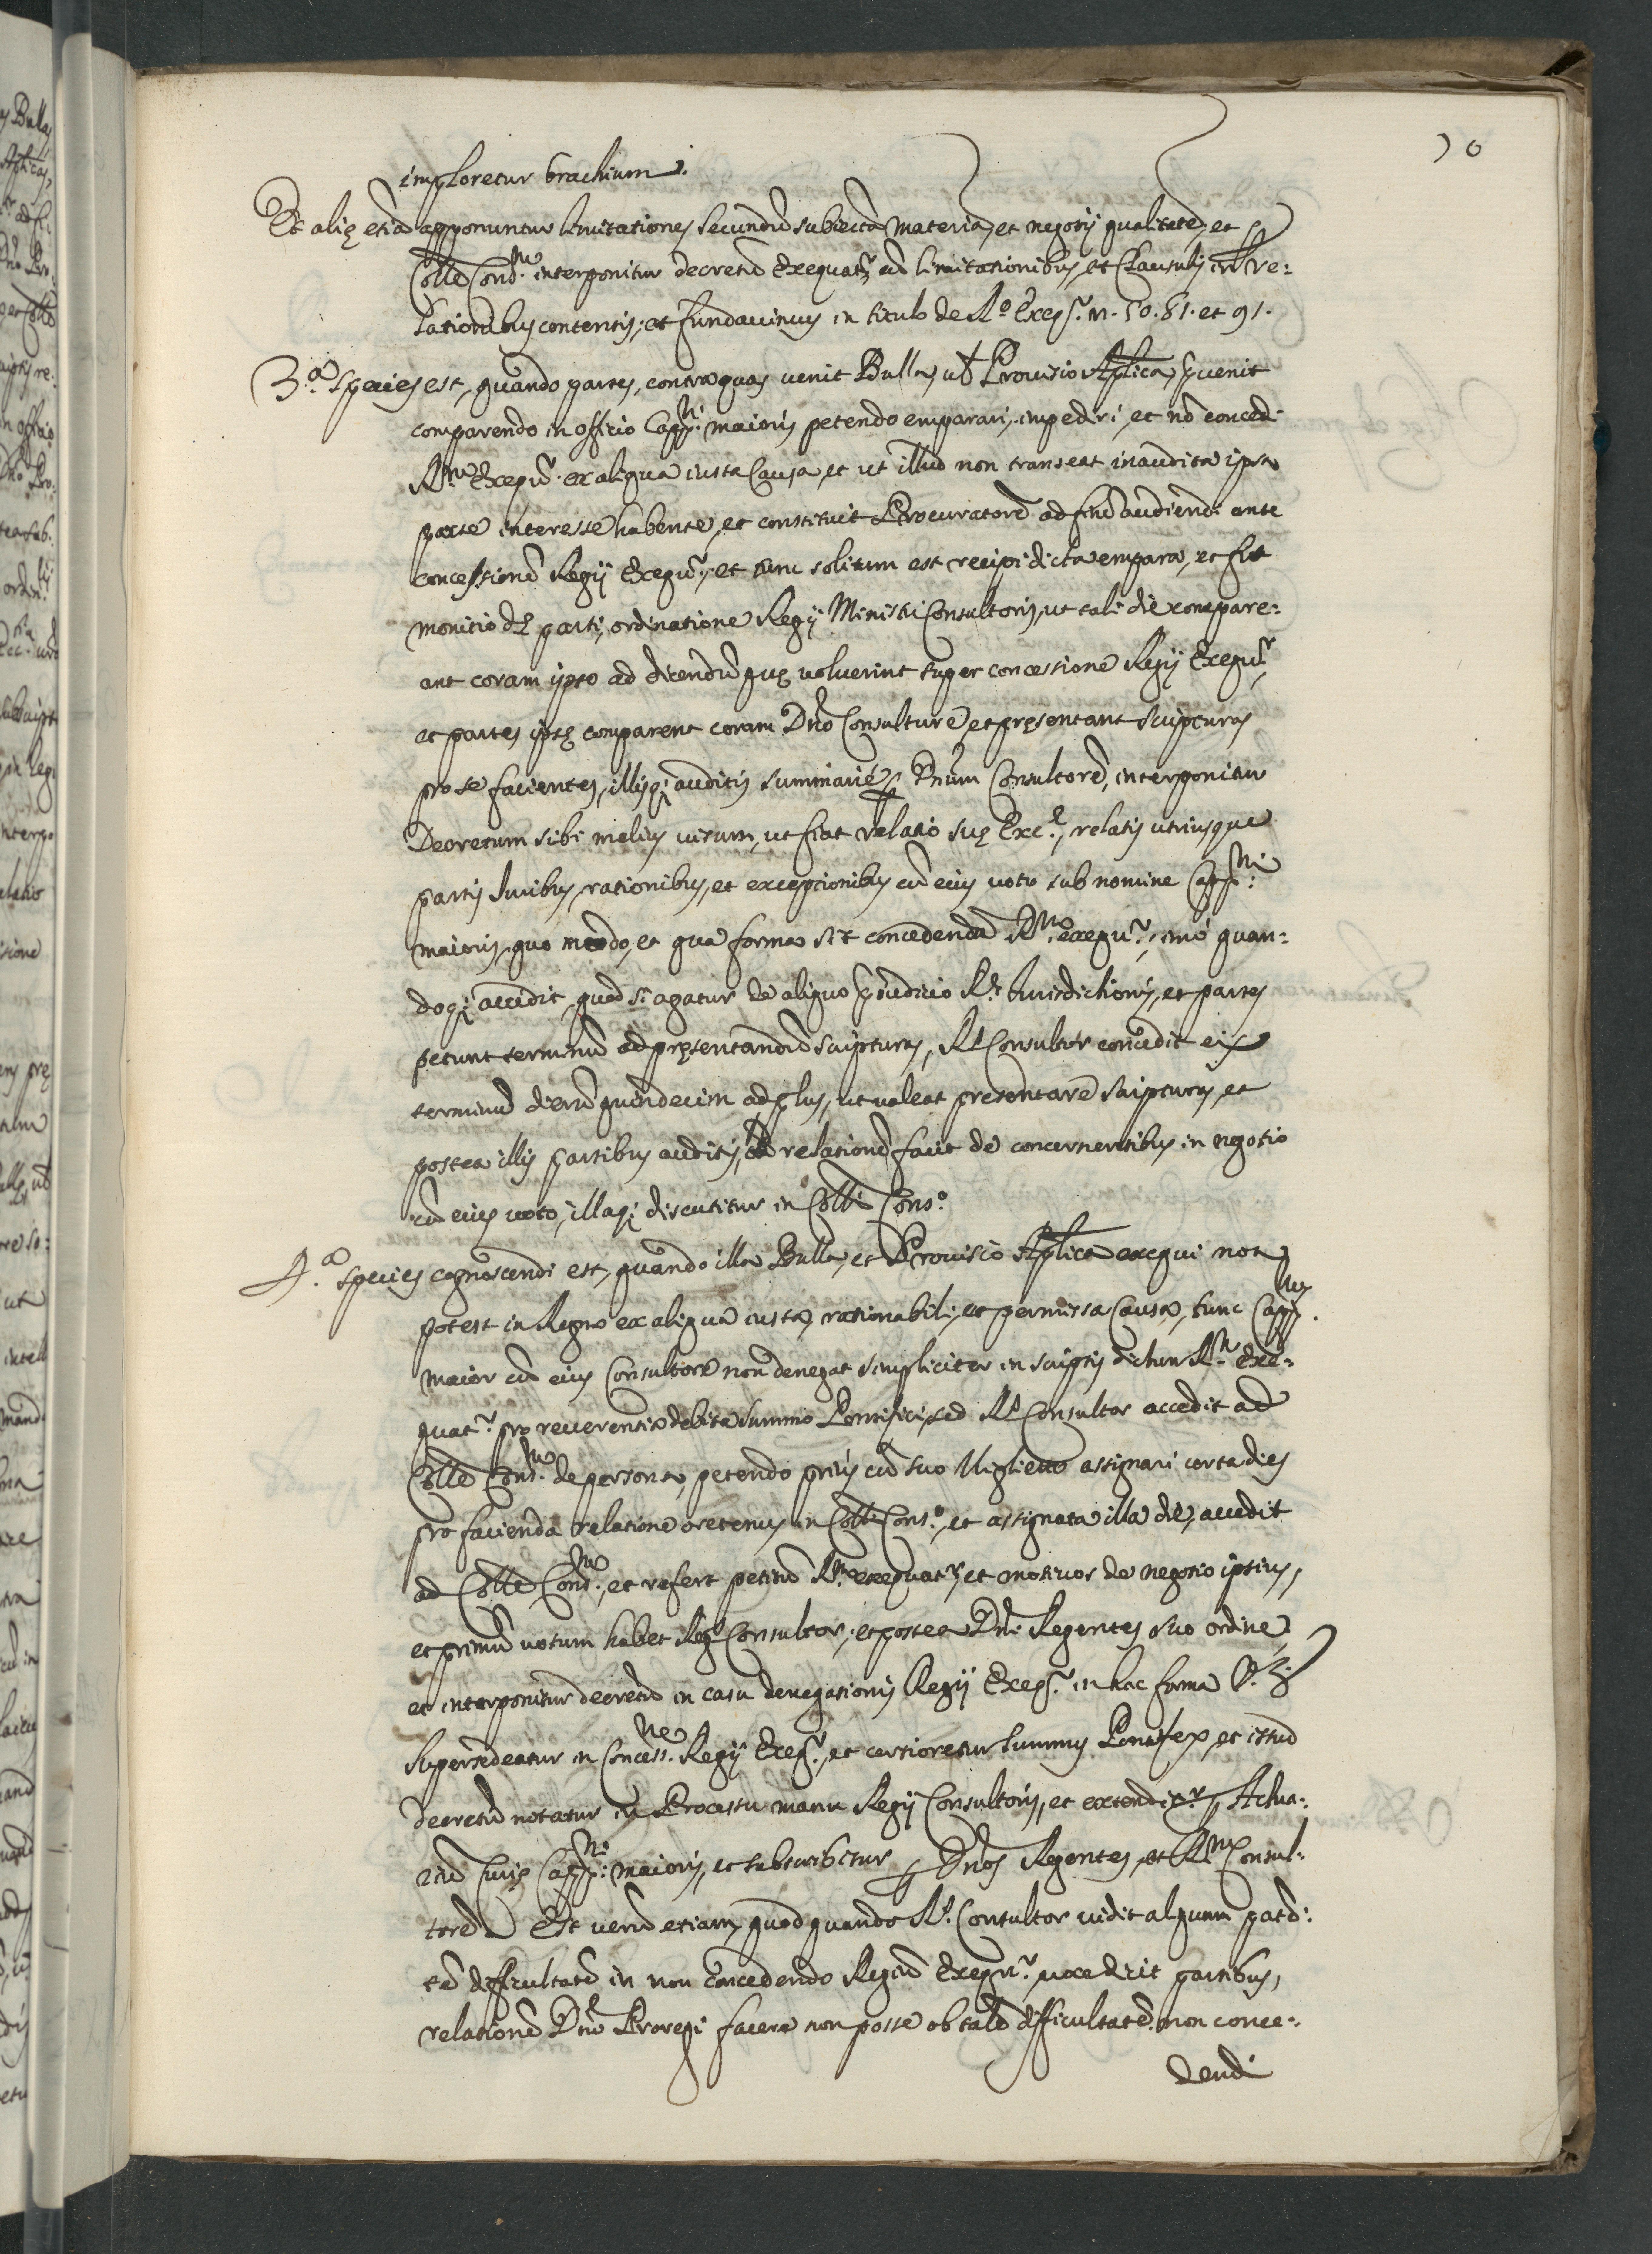 70
imploretur brachium.
Et alię etiã apponuntur limitationes secundũ subiectã materiã, et negotij qualitatẽ, et ꝑ
Colle Cons.m interponitur decretũ Exequatr cũ limitationibus, et Clausulis in re:
lationibus contentis, et fundavimus in titulo de Ro. Exeqr. n. 50. 81. et 91.
3.a species est, quando partes, contra quas venit Bulla, ut Provisio Aplica, p̃venit
comparendo in officio Cappni. maioris petendo emparari, impediri, et nõ concedi
Rm. Exequr. ex aliqua iusta Causa, et ut illud non transeat inaudita ipsa
parte interesse habente, et constituit Procuratorẽ ad finẽ audiendi ante
concessionẽ Regij Exequr., et tunc solitum est recipi dicta empara, et fit
monitio dę parti, ordinatione Regij Ministri Consultoris, ut tali die compare:
ant coram ipso ad dicendũ quę voluerint super concessione Regij Exequr.,
et partes ipsę comparent coram Dño Consultore, et pręsentant scripturas
pro se facientes, illisq; auditis summarié ꝑ Dñum Consultorẽ, interponitur
Decretum sibi melius visum, ut fiat relatio suę Exc.ę, relatis utriusque
partis Iuribus, rationibus, et exceptionibus cũ eius voto sub nomine Cappni.
maioris, quo modo, et qua forma sit concedendũ Rm. exequr., imó quan:
doq; accidit, quod si agatur de aliquo p̃iudicio R.e Iurisdictionis, et partes
petunt terminũ ad pręsentandũ scripturas, Rs Consultor concedit eis
terminũ dierũ quindecim ad plus, ut valeat presentare scripturas, et
postea illis partibus auditis, relationẽ facit de concernentibus in negotio
cũ eius voto, illaq; discutitur in Colli Conso.
4.a species cognoscendi est, quando illa Bulla, et Provisio Aplica exequi non
potest in Regno ex aliqua iusta, rationabili, et permissa Causa, tunc Cappns.
maior cũ eius Consultore non denegat simpliciter in scriptis dictum Rm. Exe:
quatr. pro reverentia debita Summo Pontifici, sed Rs Consultor accedit ad
Colle Cons.m de persona, petendo prius cũ suo Viglietto assignari certa dies
pro facienda relatione oretenus in Colli Conso., et assignata illa die, accedit
ad Colle Cons.m, et refert petitũ Rm. exequatr, et motivos de negotio ipsius,
et primũ votum habet Regs Consultor, et postea Dñi Regentes suo ordine,
et interponitur decretũ in casu denegationis Regij Exeqr. in hac forma V.Z.
Supersedeatur in Concess.ne Regij Exeqr., et certioretur Summus Pontifex, et istud
decretũ notatur in Processu manu Regij Consultoris, et extenditur ꝑ Actua:
riũ Curię Cappni. maioris, et subscribitur ꝑ Dños Regentes, et Rm Consul:
torẽ. Est verũ etiam, quod quando Rs. Consultor vidit aliquam
tẽ difficultatẽ in non concedendo Regiũ Exequr. voce dicit partibus,
relationẽ Dño Proregi facere non posse ob talẽ difficultatẽ non conce:
dendi